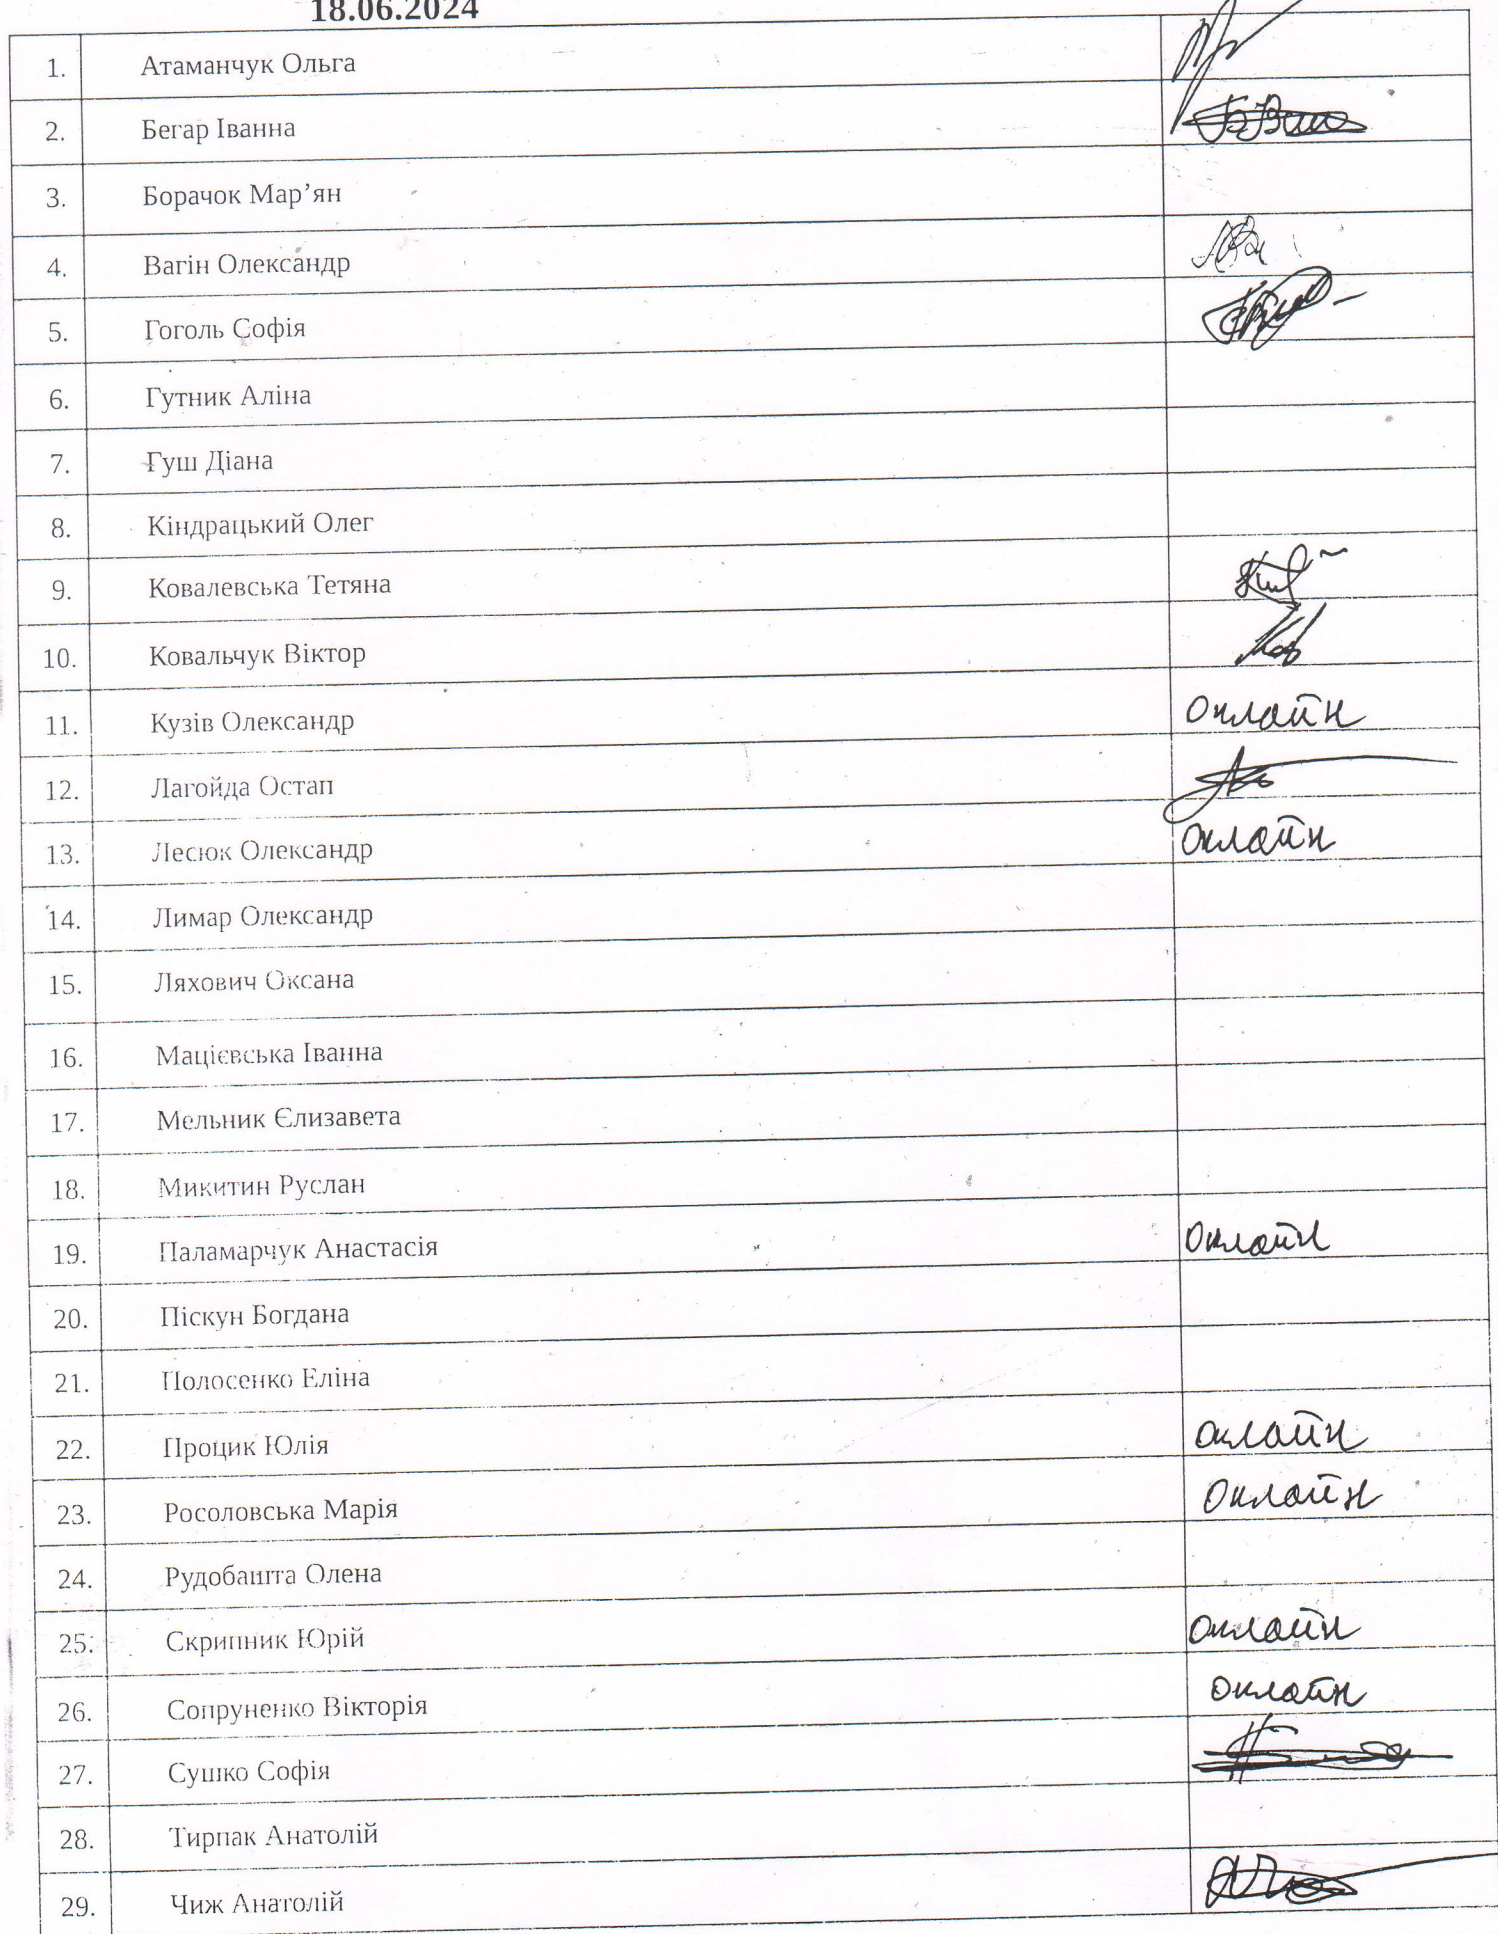 18.06.2024
1. Атаманчук Ольга
2. Бегар Іванна
3. Борачок Мар’ян
4. Вагін Олександр
5. Гоголь Софія
6. Гутник Аліна
7. Гуш Діана
8. Кіндрацький Олег
9. Ковалевська Тетяна
10. Ковальчук Віктор
11. Кузів Олександр онлайн
12. Лагойда Остап
13. Лесюк Олександр онлайн
14. Лимар Олександр
15. Ляхович Оксана
16. Мацієвська Іванна
17. Мельник Єлизавета
18. Микитин Руслан
19. Паламарчук Анастасія онлайн
20. Піскун Богдана
21. Полосенко Еліна
22. Процик Юлія онлайн
23. Росоловська Марія онлайн
24. Рудобашта Олена
25. Скрипник Юрій онлайн
26. Сопруненко Вікторія онлайн
27. Сушко Софія
28. Тирпак Анатолій
29. Чиж Анатолій